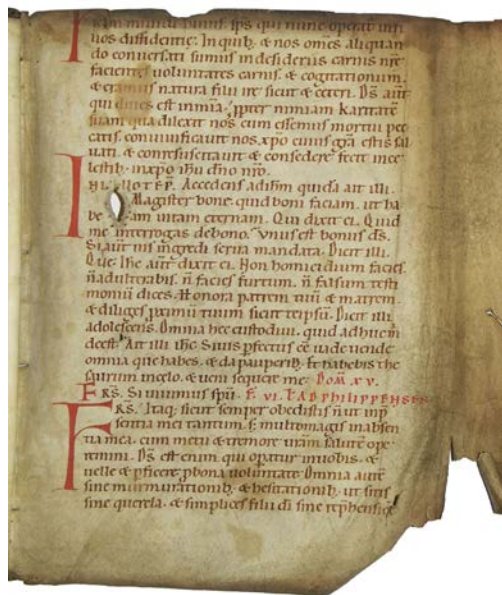 ram mundi huius. sps qui nunc operat in fi
lios diffidentie. In quib; & nos oms aliquan
do conversati sumus in desideriis carnis nre
facientes voluntates carnis. & cogitationum.
& eramus natura filii ire sicut & ceteri. Ds aut
qui dives est in mia. ppter nimiam karitate
suam qua dilexit nos cum essemus mortui pec
catis. convivificavit nos xpo cuius gra estis sal
vati. & conresuscitavit & consedere fecit in ce
lestib; in xpo ihu dno nro.
IN ILLO TEP. Accedens ad ihm quida ait illi.
Magister bone. quid boni faciam. ut ha
be am vitam eternam. Qui dixit ei. Quid
me interrogas de bono. Vnus est bonus ds.
Si aut vis ingredi serva mandata. Dicit illi.
Que. Ihc aut dixit ei. Non homicidium facies.
n adulterabis. n facies furtum. n falsum testi
monium dices. Honora patrem tuu & matrem.
& diliges pximu tuum sicut teipsu. Dicit illi
adolescens. Omnia hec custodivi. quid adhuc m
deest. Ait illi ihc. Si vis pfectus ee vade vende
omnia que habes. & da pauperib; Et habebis the
saurum in celo. & veni sequere me. Dom xv.
FRS. Si vivimus spu. F. VI. AD PHILIPPENSES
FRS. Itaq; sicut semper obedistis n ut in p
sentia mei tantum. s; multo magis in absen
tia mea. cum metu & tremore vram salute ope
remini. Ds est enim qui opatur in vobis. &
velle & pficere p bona voluntate. Omnia aute
sine murmurationib; & hesitationib; ut sitis
sine querela. & simplices filii di sine rephensioe